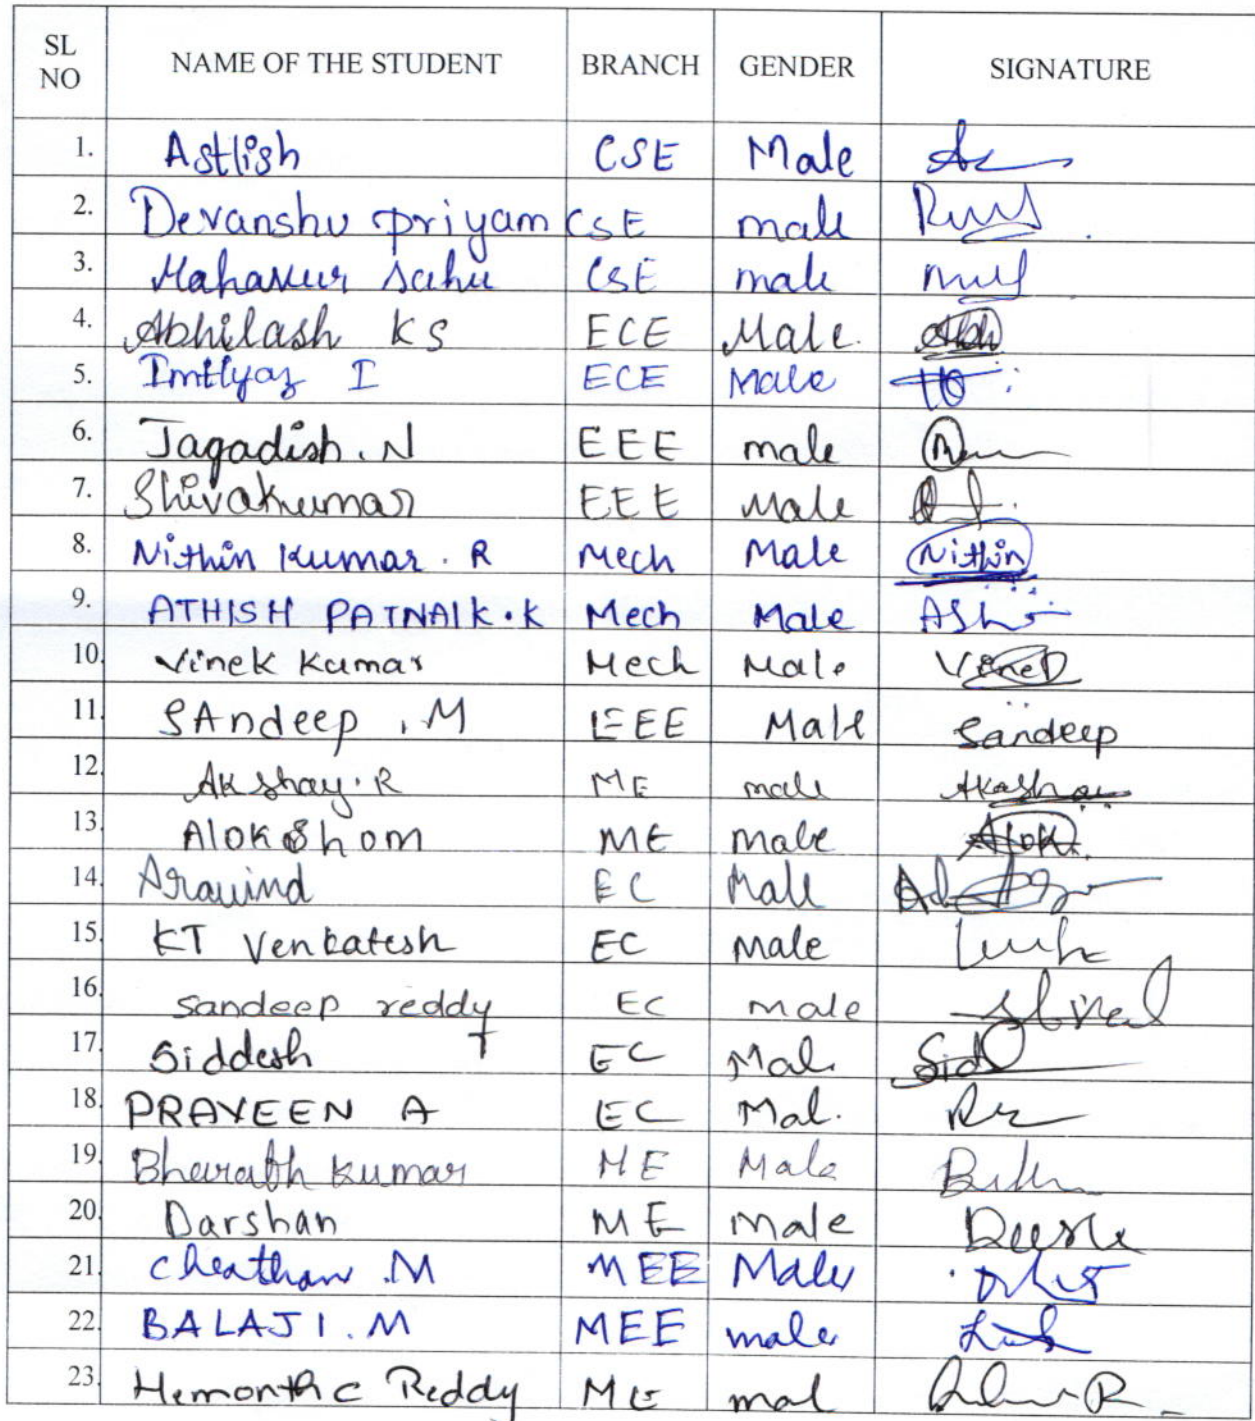 SL NO NAME OF THE STUDENT BRANCH GENDER SIGNATURE
1. Astlish CSE Male
2. Devanshu priyam CSE male
3. Mahaveer sahu CSE male
4. Abhilash KS ECE Male.
5. Imtiyaz I ECE Male
6. Jagadish. N EEE male
7. Shivakumar EEE Male
8. Nithin kumar. R Mech Male Nithin
9. ATHISH PATNAIK.K Mech Male
10. Vinek Kumar Mech Male
11. SAndeep . M EEE Male Sandeep
12. Akshay. R ME male
13. Alok Shom ME Male Alok
14. Aravind EC Male
15. KT Venkatesh EC Male
16. sandeep reddy EC male
17. Siddesh T EC Mal. Sid
18. PRAVEEN A EC Mal.
19. Bharath kumar ME Male
20. Darshan ME Male
21. Cheathan .M MEE Male
22. BALAJI.M MEE male
23. Hemonth c Reddy ME mal